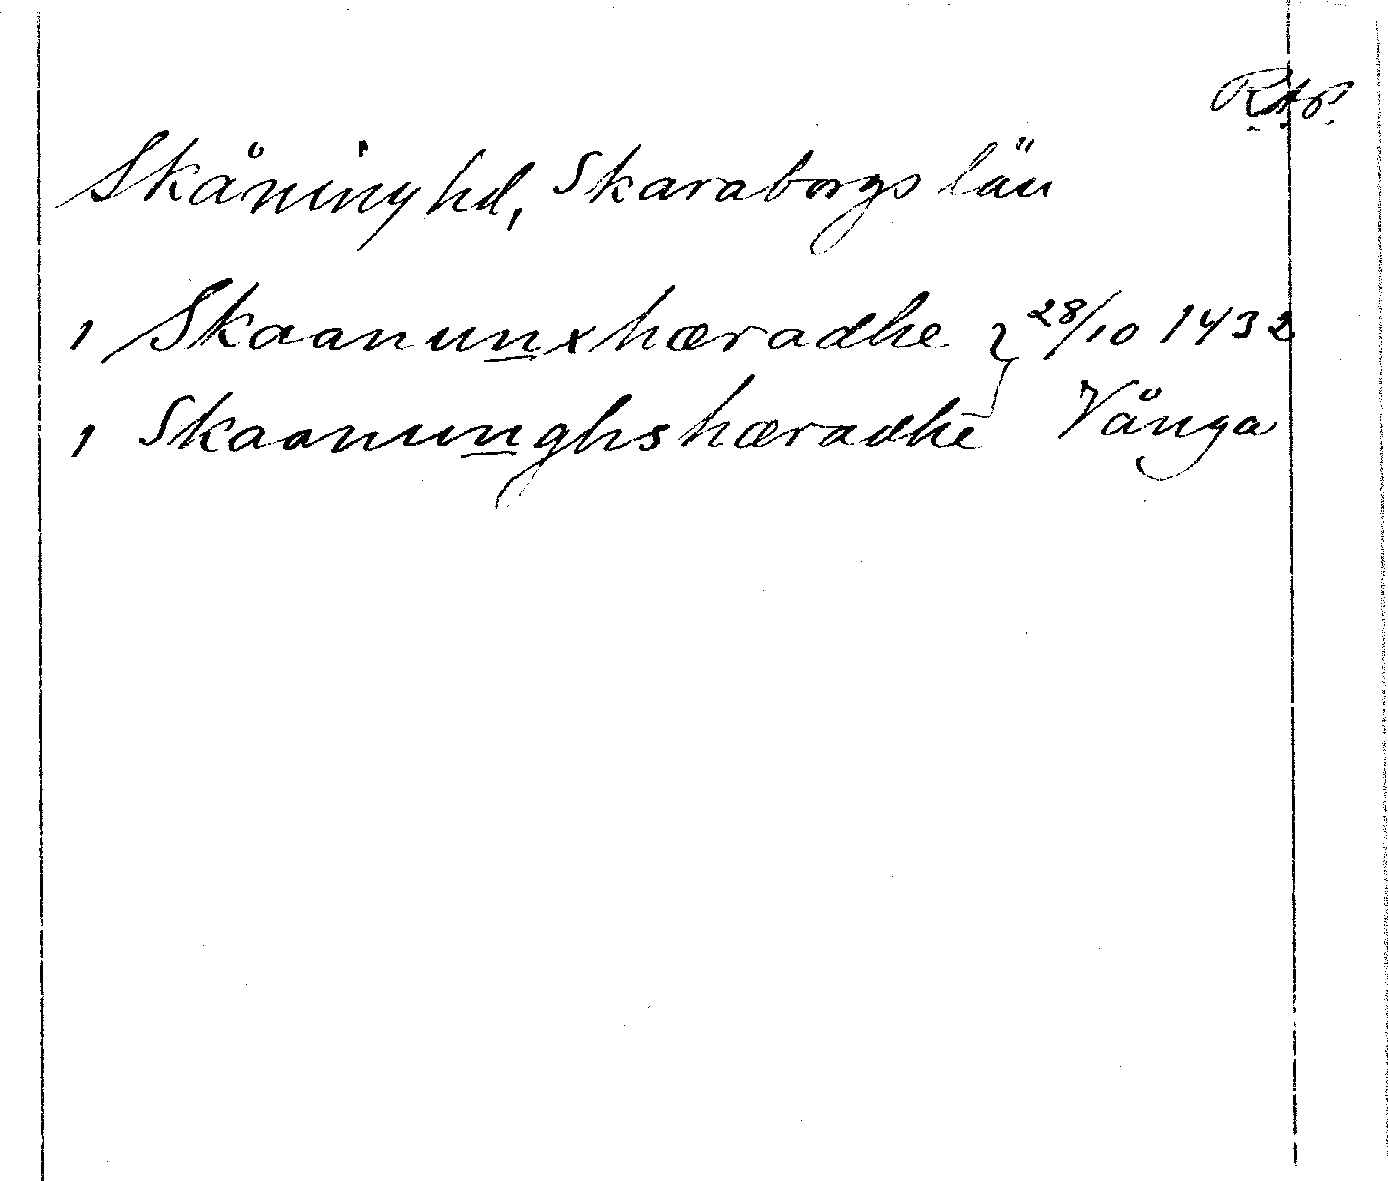 R.A.P.
Skåning hd, Skaraborgs län
, Skaanunxhæradhe } 28/10 1432
, Skaanunghshæradhe Vånga